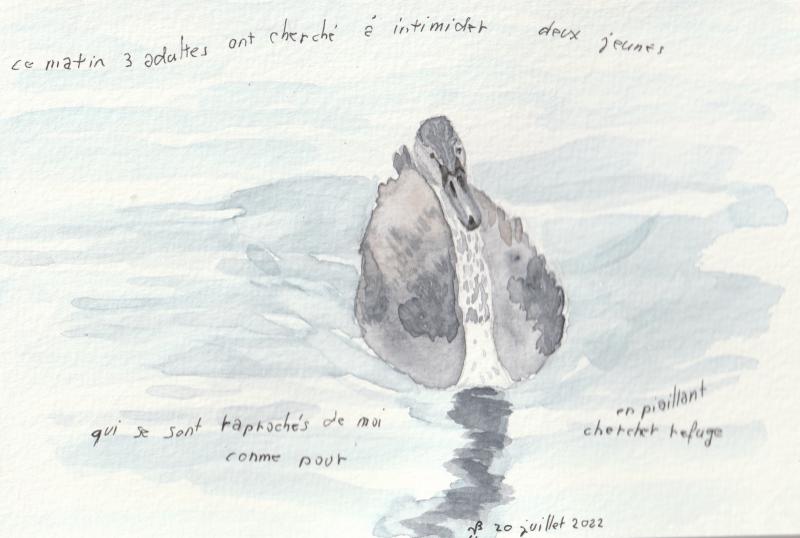 ce matin 3 adultes ont cherché à intimider deux jeunes
qui se sont raprochés de moi
comme pour
en piaillant
chercher refuge
20 juillet 2022